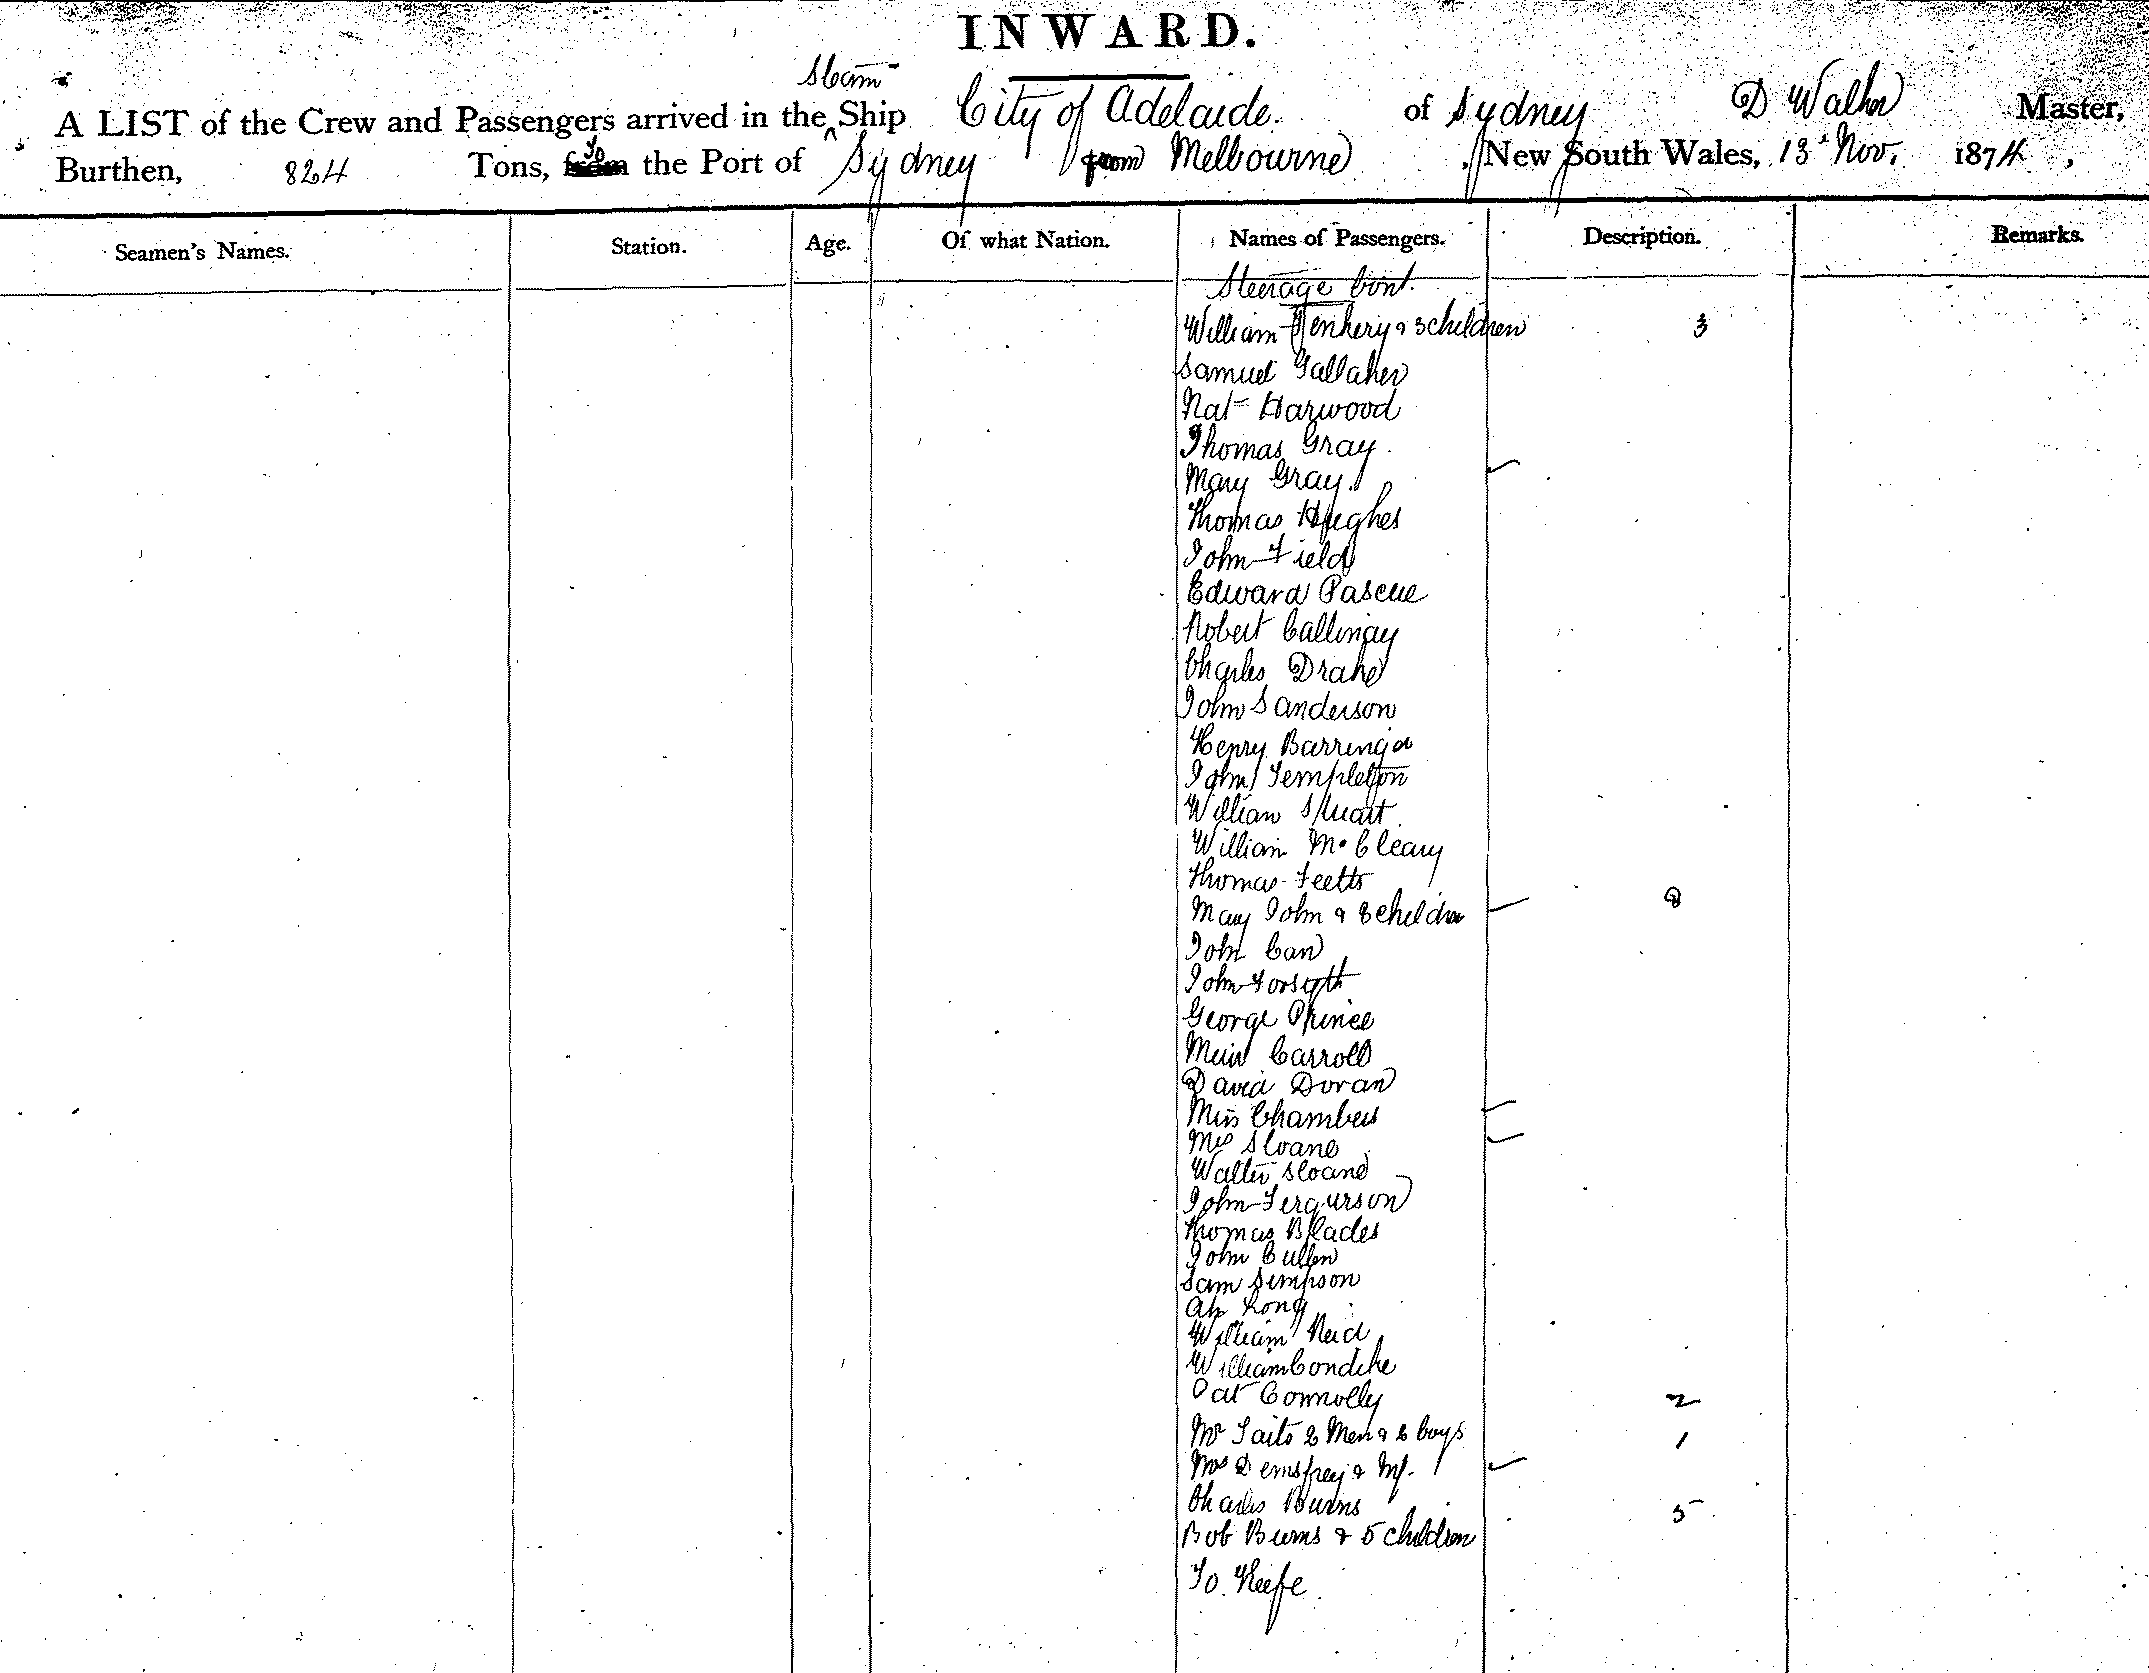 INWARD.
Steam
A LIST of the Crew and Passengers arrived in the ^ Ship City of Adelaide. of Sydney D Walker Master,
To
Burthen, 824 Tons, from the Port of Sydney from Melbourne, New South Wales, 13 Nov. 1874,
Seamen's Names. Station. Age. Of what Nation. Names of Passengers. Description. Remarks.
Steerage Cont.
William & 3 children 3
Samuel Gallaher
Nat Harwood
Thomas Gray
Mary Gray
Thomas Hughes
John Field
Edward Pascue
Robert Callinay
Charles Drake
John Sanderson
Henry Barringer
John Templeton
William Stuart
William McCleary
Thomas
Mary John & 8 children 8
John
John Forsyth
George Prince
Carroll
David Doran
Miss Chambers
Mrs Sloane
Walter Sloane
John Fergurson
Thomas Blades
John Cullen
Sam Simpson
Ah Long
William Reid
William Condike
Pat Connolly 2
Mr Taits 2 Men & 2 boys 1
Mrs & Inf.
Charles Burns 5
Bob Burns & 5 children
Keefe